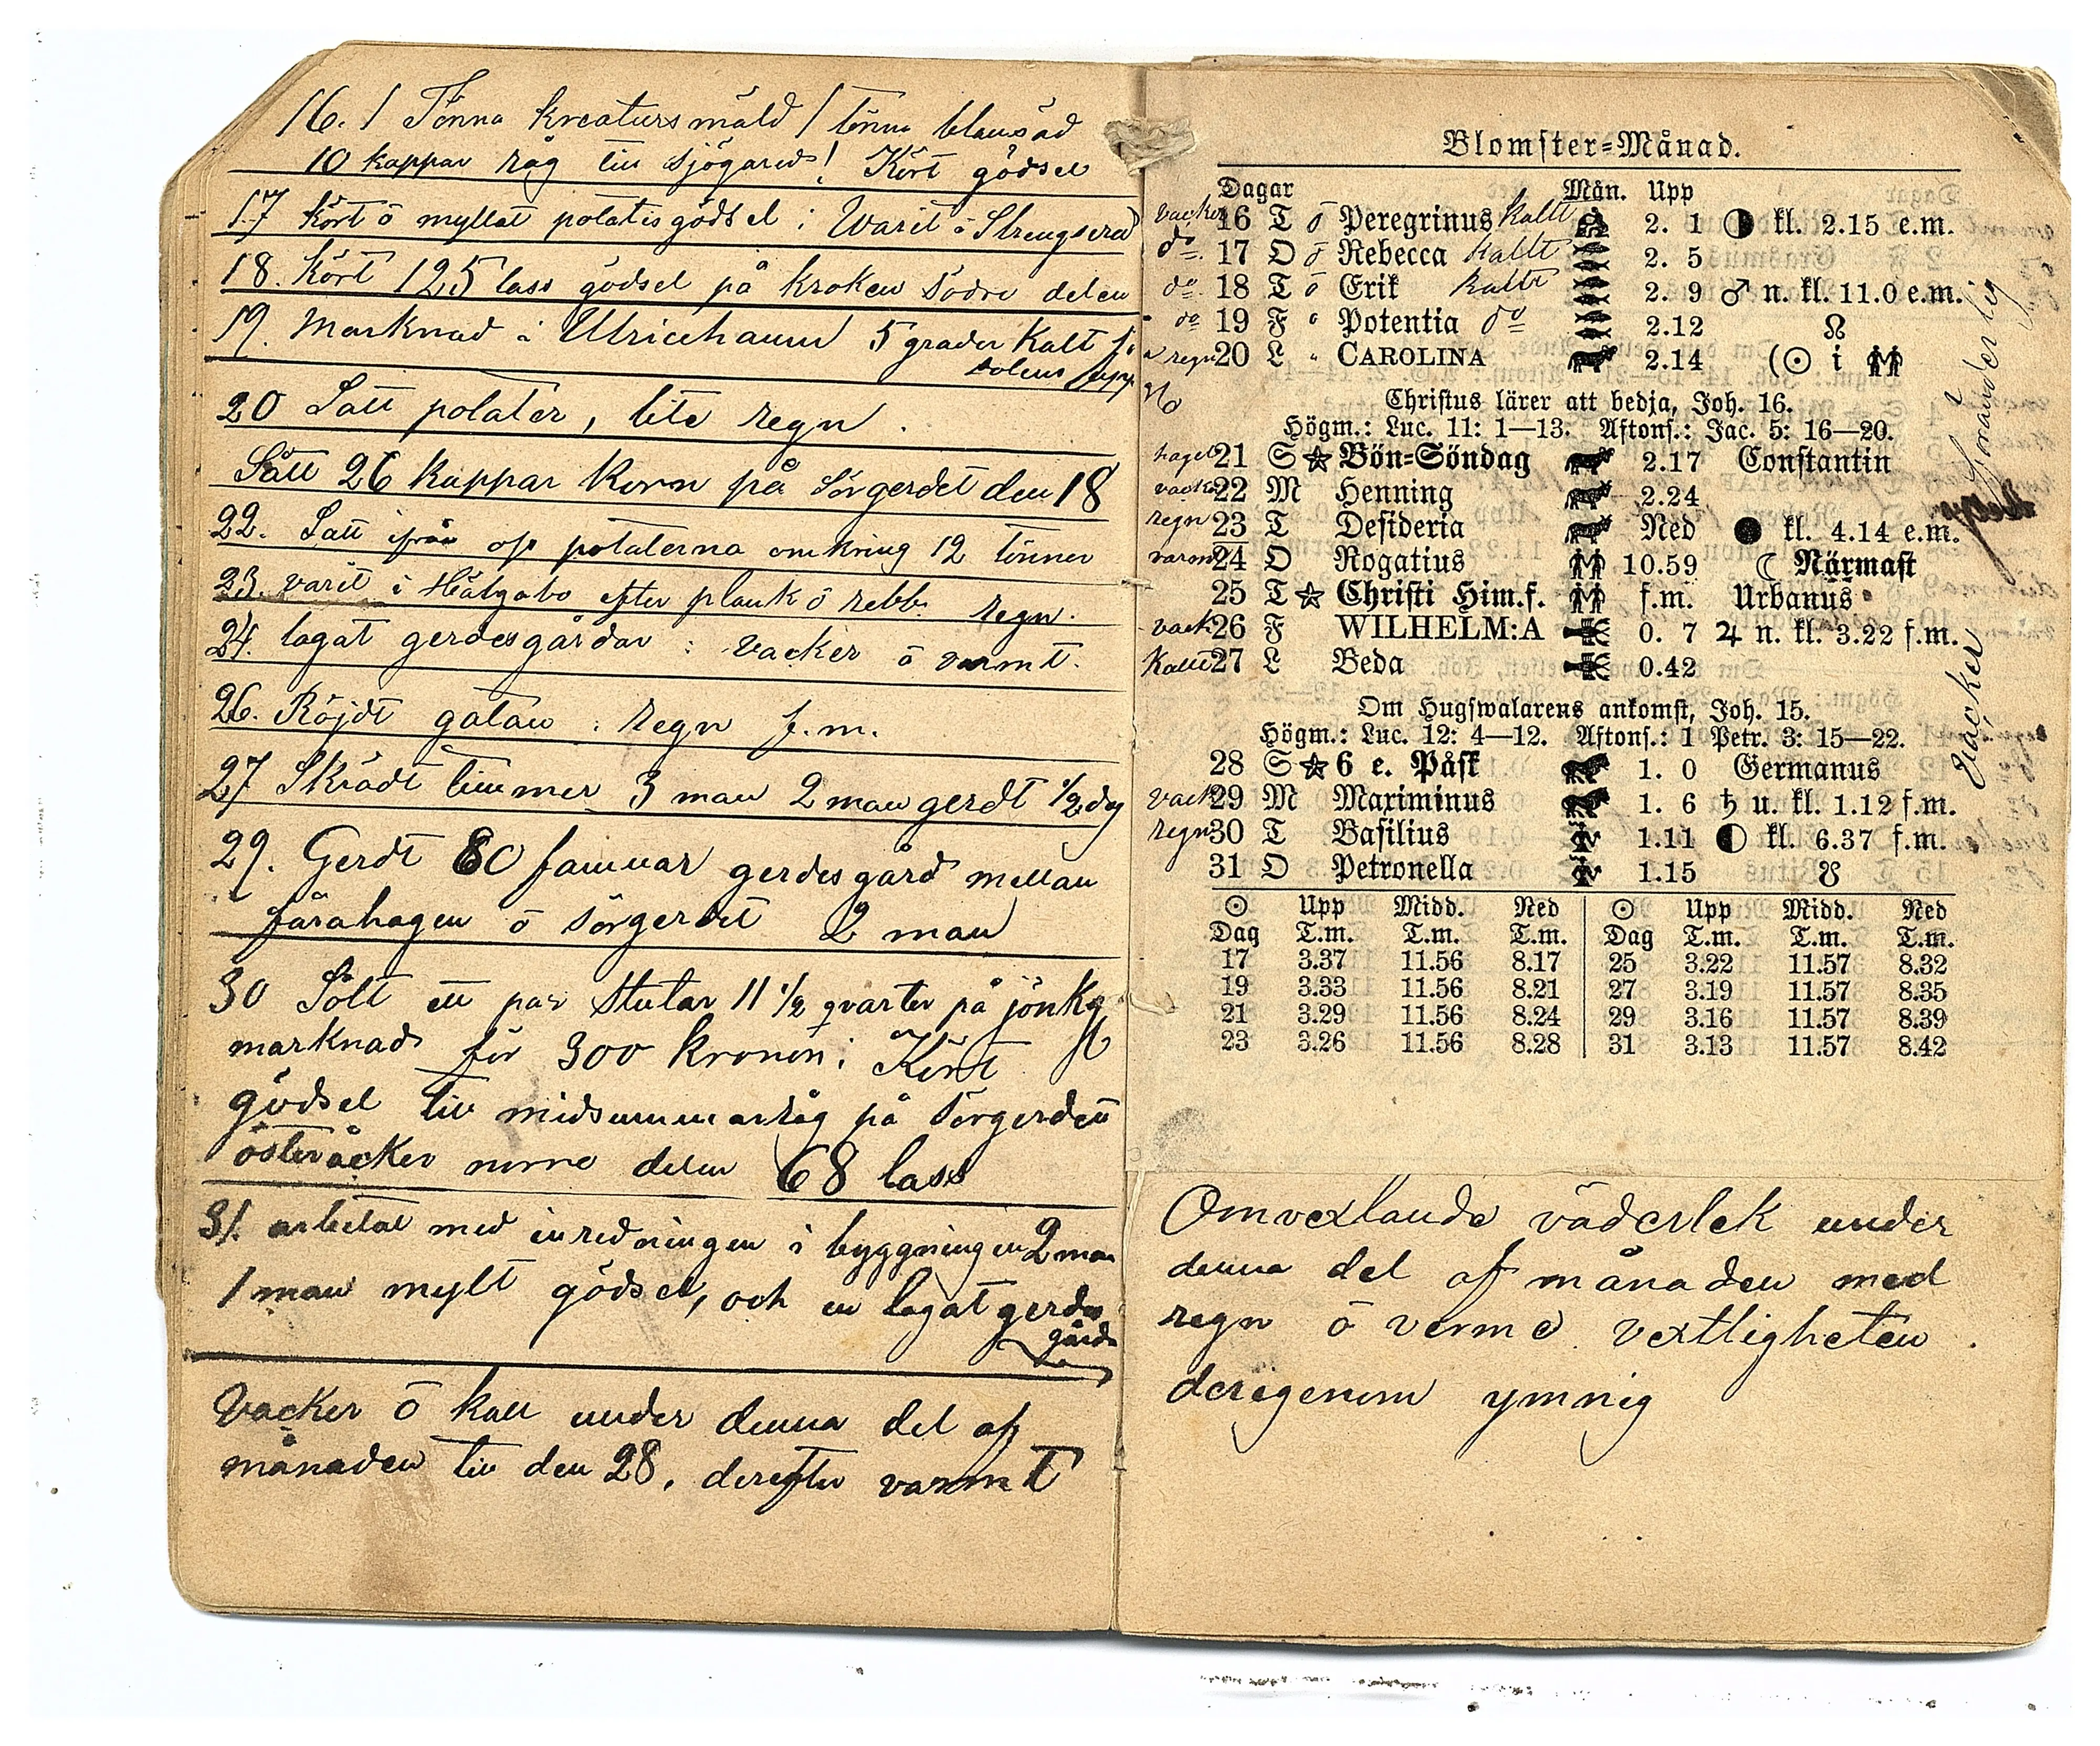 16. 1 Tönna kreatursmäld 1 tönna blansäd
10 kappar råg till sjögared! Kört gödsel
17 kört ō myllat potatisgödsel : Warit i Strengsered
18. Kört 125 lass gödsel på kroken södre delen
19. Marknad i Ulricehamn 5 grader Kalt
solens upp
20 Satt potater, lite regn.
Sått 26 kappar Korn på Sörgerdet den 18
22. Satt ifrån oss potaterna omkring 12 tönner
23. varit i Hålgabo efter plank ō rebb. regn.
24. lagat gerdesgårdar : vacker ō varmt.
26. Röjdt gatan : regn f.m.
27 Skrädt timmer 3 man 2 man gerdt 1/2 dag
29. Gerdt 80 famnar gerdesgård mellan
fårahagen ō Sörgerdet 2 man
30 Sålt ett par Stutar 11 1/2 qvarter på jönkg
marknad för 300 kronor; Kört
gödsel till midsummarråg på Sörgerdett
österåcker norre delen 68 lass
31. arbetat med inredningen i byggningen 2 man
1 man mylt gödsel, och en lagat gerdes
gårde
Vacker ō kall under denna del af
månaden till den 28. derefter varmt
Blomster=Månad.
Dagar Mån. Upp
vacker 16 T ō Peregrinus kallt 2. 1 kl. 2.15 e.m.
do 17 O ō Rebecca kallt 2. 5
do 18 T ō Erik kallt 2. 9 ♂ n. kl. 11.0 e.m.
do 19 F Potentia do 2.12 ☊
regn 20 L CAROLINA 2.14 (☉ i ♊
Christus lärer att bedja, Joh. 16.
Högm.: Luc. 11: 1—13. Aftons.: Jac. 5: 16—20.
hagel 21 S ☆ Bön=Söndag 2.17 Constantin
vacker 22 M Henning 2.24
regn 23 T Desideria Ned ● kl. 4.14 e.m.
varm 24 O Rogatius 10.59 ☾ Närmast
25 T ☆ Christi Him.f. f.m. Urbanus
vack 26 F WILHELM:A 0. 7 ♃ n. kl. 3.22 f.m.
Kallt 27 L Beda 0.42
Om Hugswalarens ankomst, Joh. 15.
Högm.: Luc. 12: 4—12. Aftons.: 1 Petr. 3: 15—22.
28 S ☆ 6 e. Påsk 1. 0 Germanus
vack 29 M Maximinus 1. 6 ♄ u. kl. 1.12 f.m.
regn 30 T Basilius 1.11 kl. 6.37 f.m.
31 O Petronella 1.15 ☋
föränderlig
Vacker
☉ Upp Midd. Ned ☉ Upp Midd. Ned
Dag T.m. T.m. T.m. Dag T.m. T.m. T.m.
17 3.37 11.56 8.17 25 3.22 11.57 8.32
19 3.33 11.56 8.21 27 3.19 11.57 8.35
21 3.29 11.56 8.24 29 3.16 11.57 8.39
23 3.26 11.56 8.28 31 3.13 11.57 8.42
Omvexlande väderlek under
denna del af månaden med
regn ō verme vextligheten
derigenom ymnig